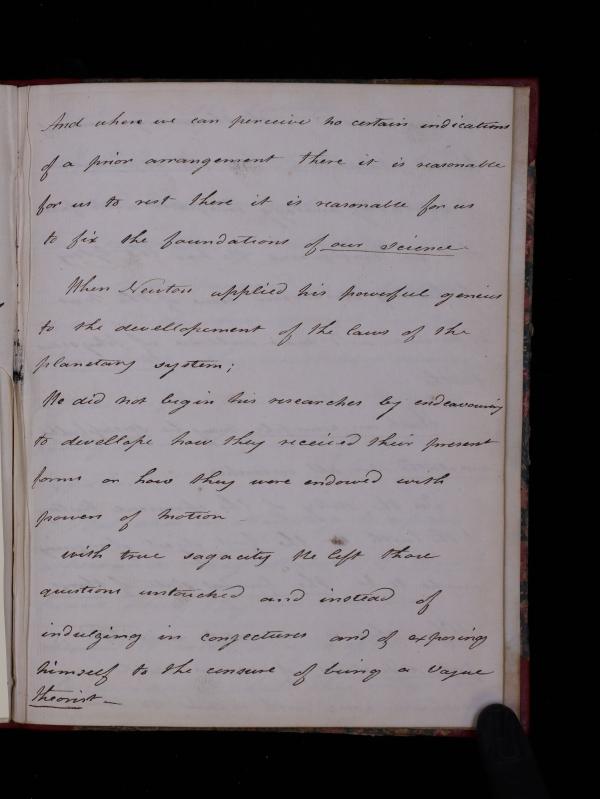 And where we can perceive no certain indications
of a prior arrangement there it is reasonable
for us to rest there it is reasonable for us
to fix the foundations of our science
When Newton applied his powerful genius
to the devellopement of the laws of the
planetary system;
He did not begin his researches by endeavouring
to devellope how they received their present
forms or how they were endowed with
powers of motion
with true sagacity He left those
questions untouched and instead of
indulging in conjectures and of exposing
himself to the censure of being a vague
theorist —